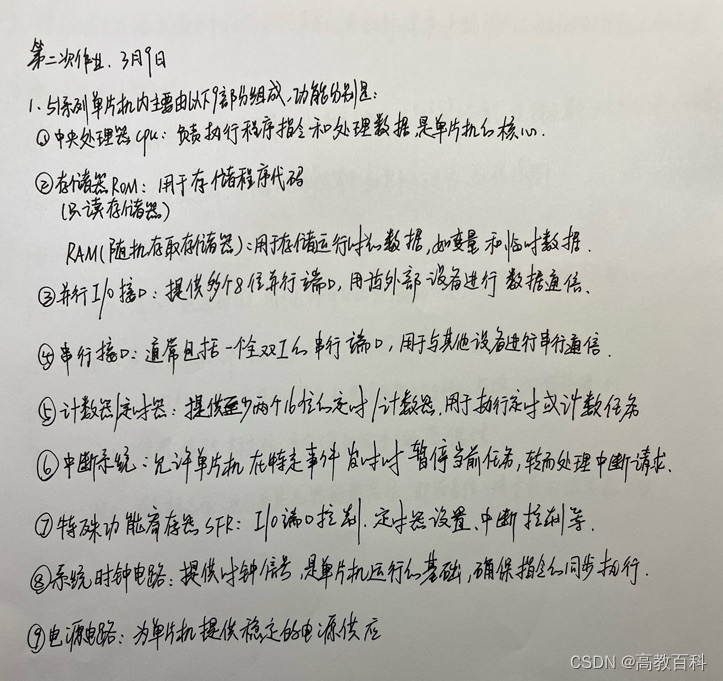 第二次作业. 3月9日
1. 51系列单片机内主要由以下9部分组成,功能分别是:
①中央处理器cpu: 负责执行程序指令和处理数据,是单片机的核心.
②存储器ROM: 用于存储程序代码
(只读存储器)
RAM(随机存取存储器):用于存储运行时的数据,如变量和临时数据.
③并行I/O接口: 提供多个8位并行端口,用于与外部设备进行数据通信.
④串行接口: 通常包括一个全双工的串行端口,用于与其他设备进行串行通信.
⑤计数器/定时器: 提供至少两个16位的定时/计数器,用于执行定时或计数任务
⑥中断系统: 允许单片机在特定事件发生时暂停当前任务,转而处理中断请求.
⑦特殊功能寄存器SFR: I/O端口控制、定时器设置、中断控制等.
⑧系统时钟电路: 提供时钟信号,是单片机运行的基础,确保指令的同步执行.
⑨电源电路: 为单片机提供稳定的电源供应
CSDN @高教百科